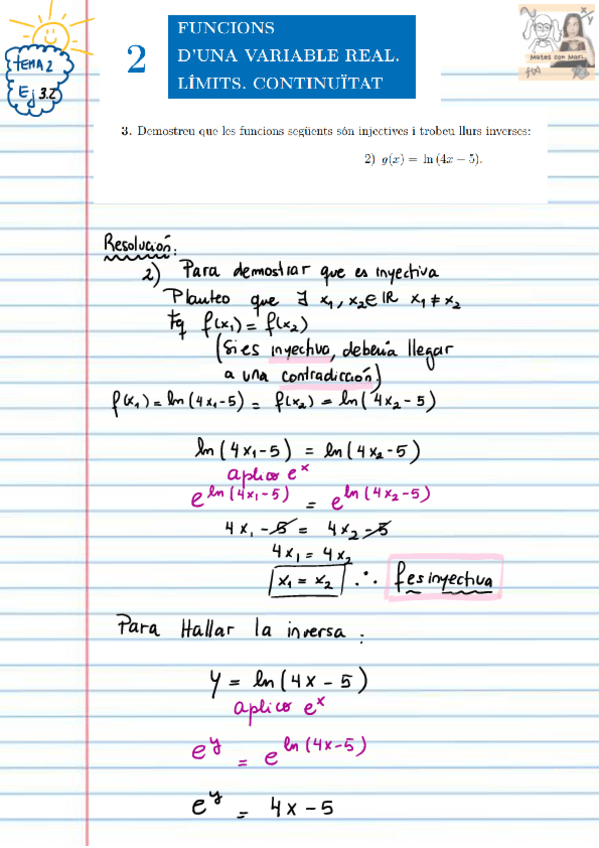 TEMA 2
Ej 3.2
2
FUNCIONS
D'UNA VARIABLE REAL.
LÍMITS. CONTINUÏTAT
Mates con Mari
f(x)
3. Demostreu que les funcions següents són injectives i trobeu llurs inverses:
2) g(x) = ln (4x − 5).
Resolución:
2) Para demostrar que es inyectiva
Planteo que ∃ x₁, x₂ ∈ ℝ x₁ ≠ x₂
tq f(x₁) = f(x₂)
(Si es inyectiva, debería llegar
a una contradicción)
f(x₁) = ln(4x₁-5) = f(x₂) = ln(4x₂-5)
ln(4x₁-5) = ln(4x₂-5)
aplico eˣ
e^ln(4x₁-5) = e^ln(4x₂-5)
4x₁-5 = 4x₂-5
4x₁ = 4x₂
x₁ = x₂ ∴ f es inyectiva
Para Hallar la inversa:
y = ln(4x-5)
aplico eˣ
e^y = e^ln(4x-5)
e^y = 4x-5